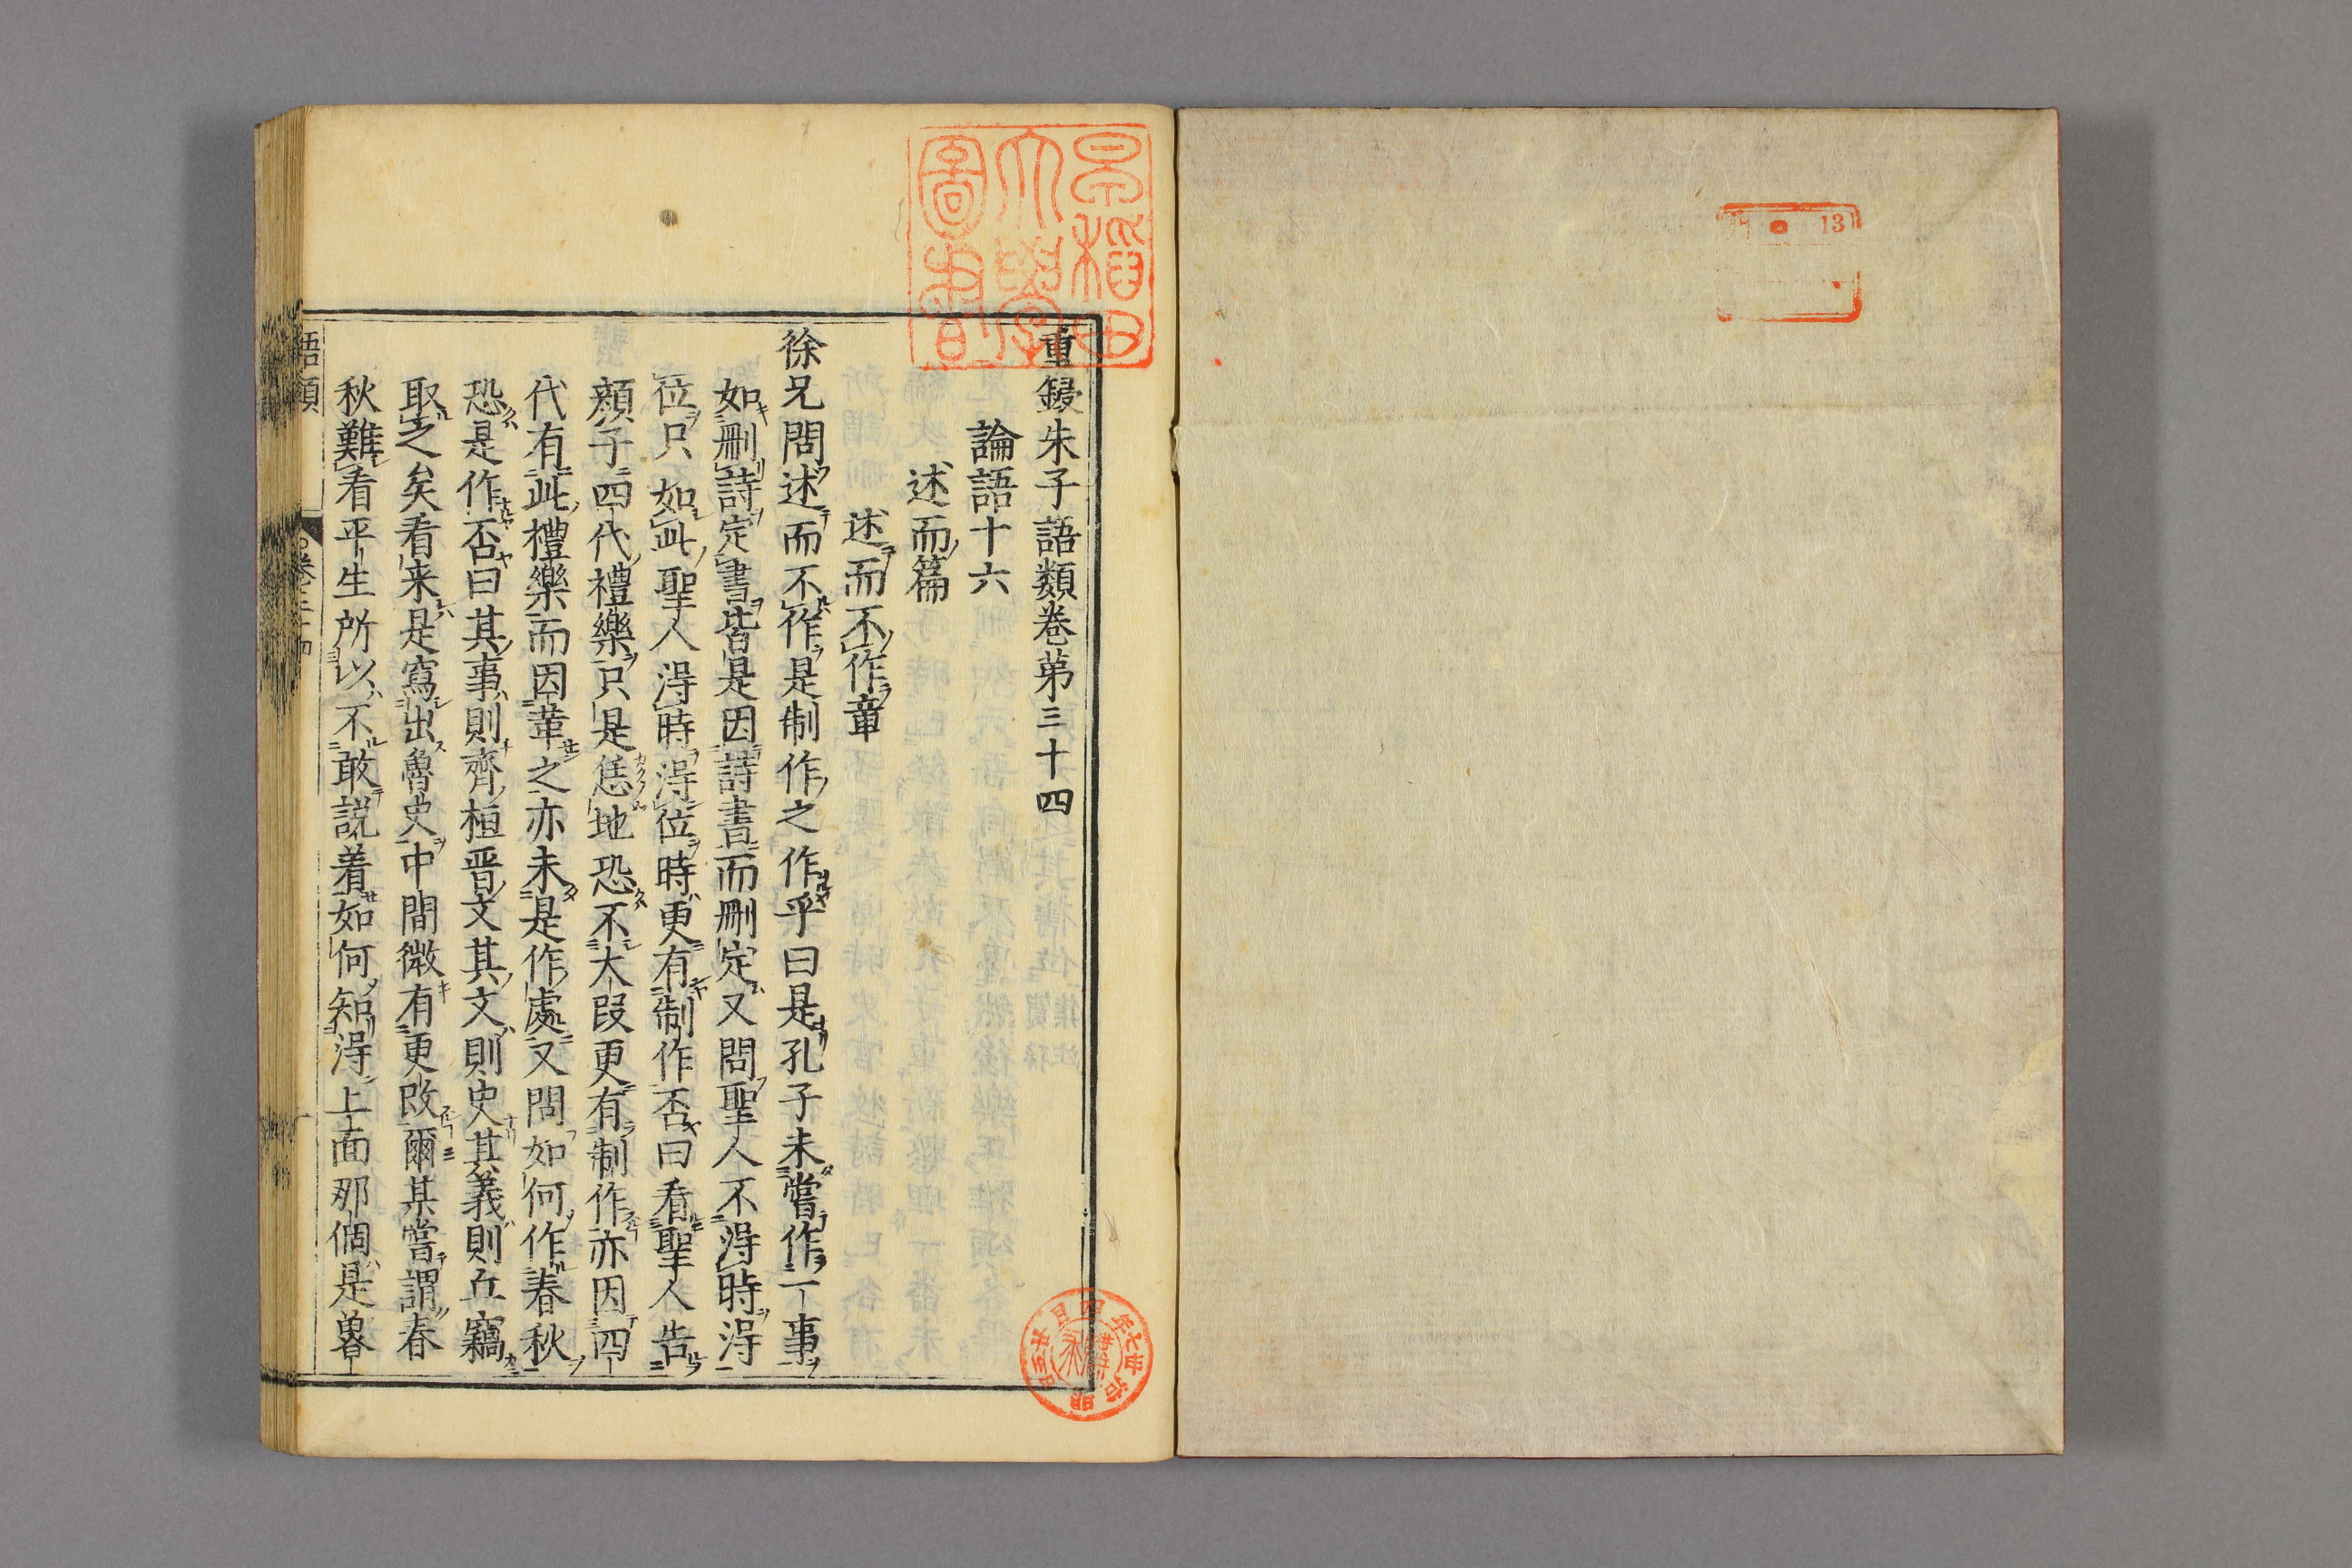 13
早稲田
大學
圖書
重鋟朱子語類卷第三十四
論語十六
述而篇
述而不作章
徐兄問述而不作是制作之作乎曰是孔子未嘗作一事
如刪詩定書皆是因詩書而刪定又問聖人不得時得
位只如此聖人得時得位時更有制作否曰看聖人告
顔子四代禮樂只是恁地恐不大段更有制作亦因四
代有此禮樂而因革之亦未是作處又問如何作春秋
恐是作否曰其事則齊桓晋文其文則史其義則丘竊
取之矣看来是寫出魯史中間微有更改爾某嘗謂春
秋難看平生所以不敢説着如何知得上面那個是魯
語類
卷三十四